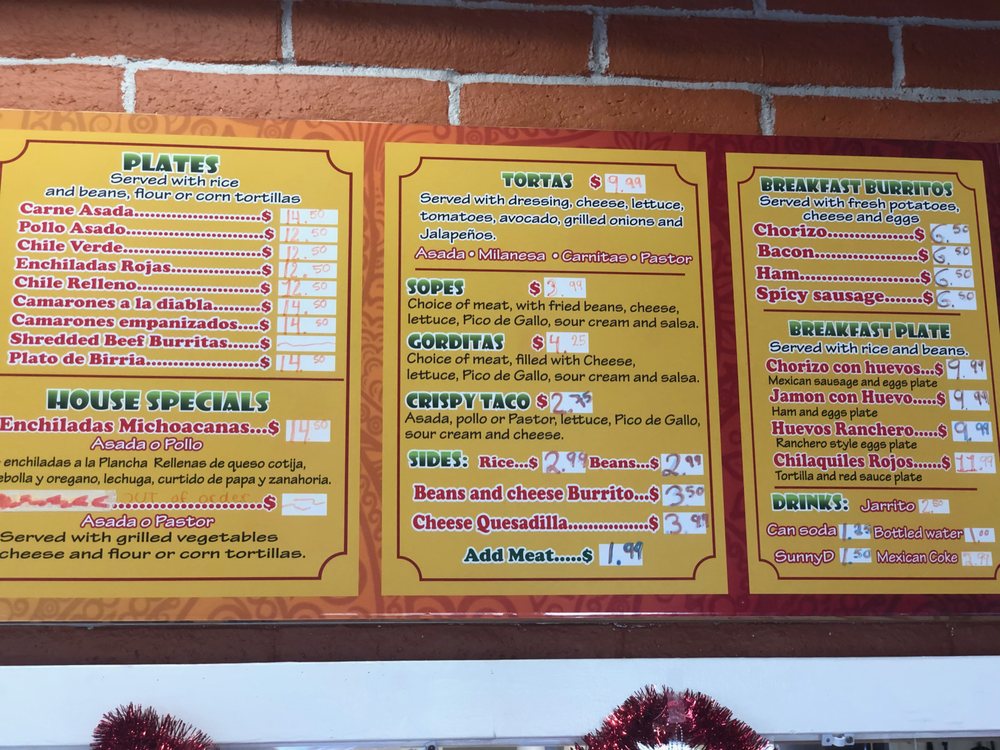 PLATES
Served with rice
and beans, flour or corn tortillas
Carne Asada.....................$ 14.50
Pollo Asado.....................$ 12.50
Chile Verde.....................$ 12.50
Enchiladas Rojas...............$ 12.50
Chile Relleno....................$ 12.50
Camarones a la diabla........$ 14.50
Camarones empanizados....$ 14.50
Shredded Beef Burritas......$
Plato de Birria..................$ 14.50
HOUSE SPECIALS
Enchiladas Michoacanas...$ 14.50
Asada o Pollo
enchiladas a la Plancha Rellenas de queso cotija,
ebolla y oregano, lechuga, curtido de papa y zanahoria.
OUT of order ....................$
Asada o Pastor
Served with grilled vegetables
cheese and flour or corn tortillas.
TORTAS $ 9.99
Served with dressing, cheese, lettuce,
tomatoes, avocado, grilled onions and
Jalapeños.
Asada • Milanesa • Carnitas • Pastor
SOPES $ 3.99
Choice of meat, with fried beans, cheese,
lettuce, Pico de Gallo, sour cream and salsa.
GORDITAS $ 4.25
Choice of meat, filled with Cheese,
lettuce, Pico de Gallo, sour cream and salsa.
CRISPY TACO $ 2.75
Asada, pollo or Pastor, lettuce, Pico de Gallo,
sour cream and cheese.
SIDES: Rice...$ 2.99 Beans...$ 2.99
Beans and cheese Burrito...$ 3.50
Cheese Quesadilla..............$ 3.99
Add Meat.....$ 1.99
BREAKFAST BURRITOS
Served with fresh potatoes,
cheese and eggs
Chorizo...............$ 6.50
Bacon.................$ 6.50
Ham....................$ 6.50
Spicy sausage.......$ 6.50
BREAKFAST PLATE
Served with rice and beans.
Chorizo con huevos...$ 9.99
Mexican sausage and eggs plate
Jamon con Huevo.....$ 9.99
Ham and eggs plate
Huevos Ranchero.....$ 9.99
Ranchero style eggs plate
Chilaquiles Rojos......$ 11.99
Tortilla and red sauce plate
DRINKS: Jarrito 2.50
Can soda 1.25 Bottled water 1.00
SunnyD 1.50 Mexican Coke 2.99